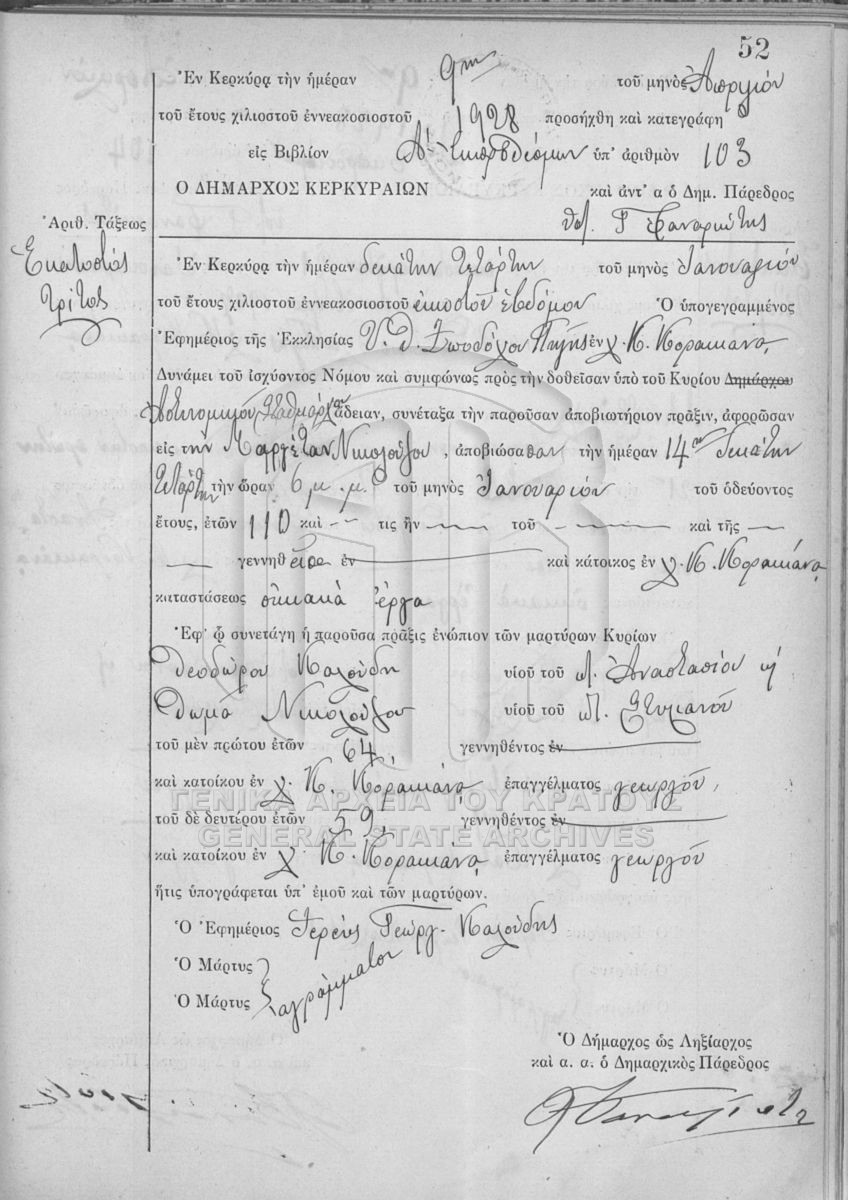 52
Ἐν Κερκύρᾳ τὴν ἡμέραν 9ην τοῦ μηνὸς Ἀπριλίου
τοῦ ἔτους χιλιοστοῦ ἐννεακοσιοστοῦ 1928 προσήχθη καὶ κατεγράφη
εἰς Βιβλίον ὑπ' ἀριθμὸν 103
Ο ΔΗΜΑΡΧΟΣ ΚΕΡΚΥΡΑΙΩΝ καὶ ἀντ' α ὁ Δημ. Πάρεδρος
Γ Φαναριώτης
Ἀριθ. Τάξεως
Ἑκατοστός
τρίτος
Ἐν Κερκύρᾳ τὴν ἡμέραν δεκάτην τετάρτην τοῦ μηνὸς Ἰανουαρίου
τοῦ ἔτους χιλιοστοῦ ἐννεακοσιοστοῦ εἰκοστοῦ ἑβδόμου Ὁ ὑπογεγραμμένος
Ἐφημέριος τῆς Ἐκκλησίας Υ. Θ. Ζωοδόχου Πηγῆς ἐν χ. Κ. Κορακιάνα
Δυνάμει τοῦ ἰσχύοντος Νόμου καὶ συμφώνως πρὸς τὴν δοθεῖσαν ὑπὸ τοῦ Κυρίου Δημάρχου
Ἀστυνομικοῦ Σταθμάρχου ἄδειαν, συνέταξα τὴν παροῦσαν ἀποβιωτήριον πρᾶξιν, ἀφορῶσαν
εἰς τὴν Μαργέταν Νικολούζου, ἀποβιώσασαν τὴν ἡμέραν 14ην δεκάτην
τετάρτην τὴν ὥραν 6 μ.μ. τοῦ μηνὸς Ἰανουαρίου τοῦ ὁδεύοντος
ἔτους, ἐτῶν 110 καὶ — τις ἦν — τοῦ — καὶ τῆς —
— γεννηθεῖσα ἐν — καὶ κάτοικος ἐν χ. Κ. Κορακιάνα
καταστάσεως οἰκιακὰ ἔργα
Ἐφ' ᾧ συνετάγη ἡ παροῦσα πρᾶξις ἐνώπιον τῶν μαρτύρων Κυρίων
Θεοδώρου Καλούδη υἱοῦ τοῦ π. Ἀναστασίου ἢ
Θωμᾶ Νικολούζου υἱοῦ τοῦ π. Στυλιανοῦ
τοῦ μὲν πρώτου ἐτῶν 64 γεννηθέντος ἐν —
καὶ κατοίκου ἐν χ. Κ. Κορακιάνα ἐπαγγέλματος γεωργοῦ,
τοῦ δὲ δευτέρου ἐτῶν 59, γεννηθέντος ἐν —
καὶ κατοίκου ἐν χ. Κ. Κορακιάνα ἐπαγγέλματος γεωργοῦ
ἥτις ὑπογράφεται ὑπ' ἐμοῦ καὶ τῶν μαρτύρων.
Ὁ Ἐφημέριος Ἱερεὺς Γεώργ. Καλούδης
Ὁ Μάρτυς
Ὁ Μάρτυς ἀγράμματοι
Ὁ Δήμαρχος ὡς Ληξίαρχος
καὶ α. α. ὁ Δημαρχικὸς Πάρεδρος
ΓΕΝΙΚΑ ΑΡΧΕΙΑ ΤΟΥ ΚΡΑΤΟΥΣ
GENERAL STATE ARCHIVES